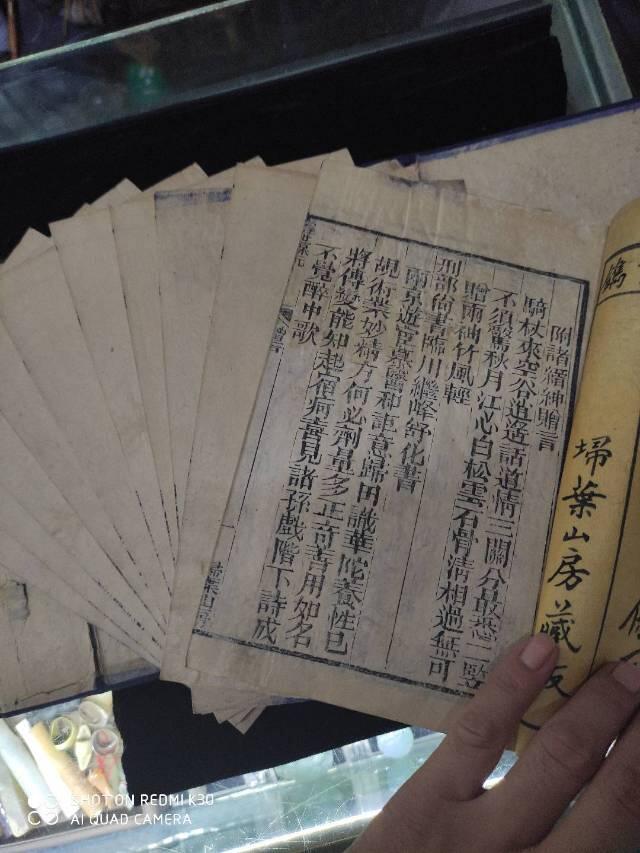 埽葉山房藏
附諸縉紳贈言
騎杖來空谷逍遙話道情三關分最悉二豎
不須驚秋月江心白松雲石骨清相過無可
贈兩袖竹風輕
刑部尚書臨川繼峰舒化書
兩京遊宦慕醫和詎意歸田識華陀養性已
覘術業妙精方何必劑量多正奇善用如名
將傳變能知起宿痾喜見諸孫戲階下詩成
不覺醉中歌
SHOT ON REDMI K30
AI QUAD CAMERA